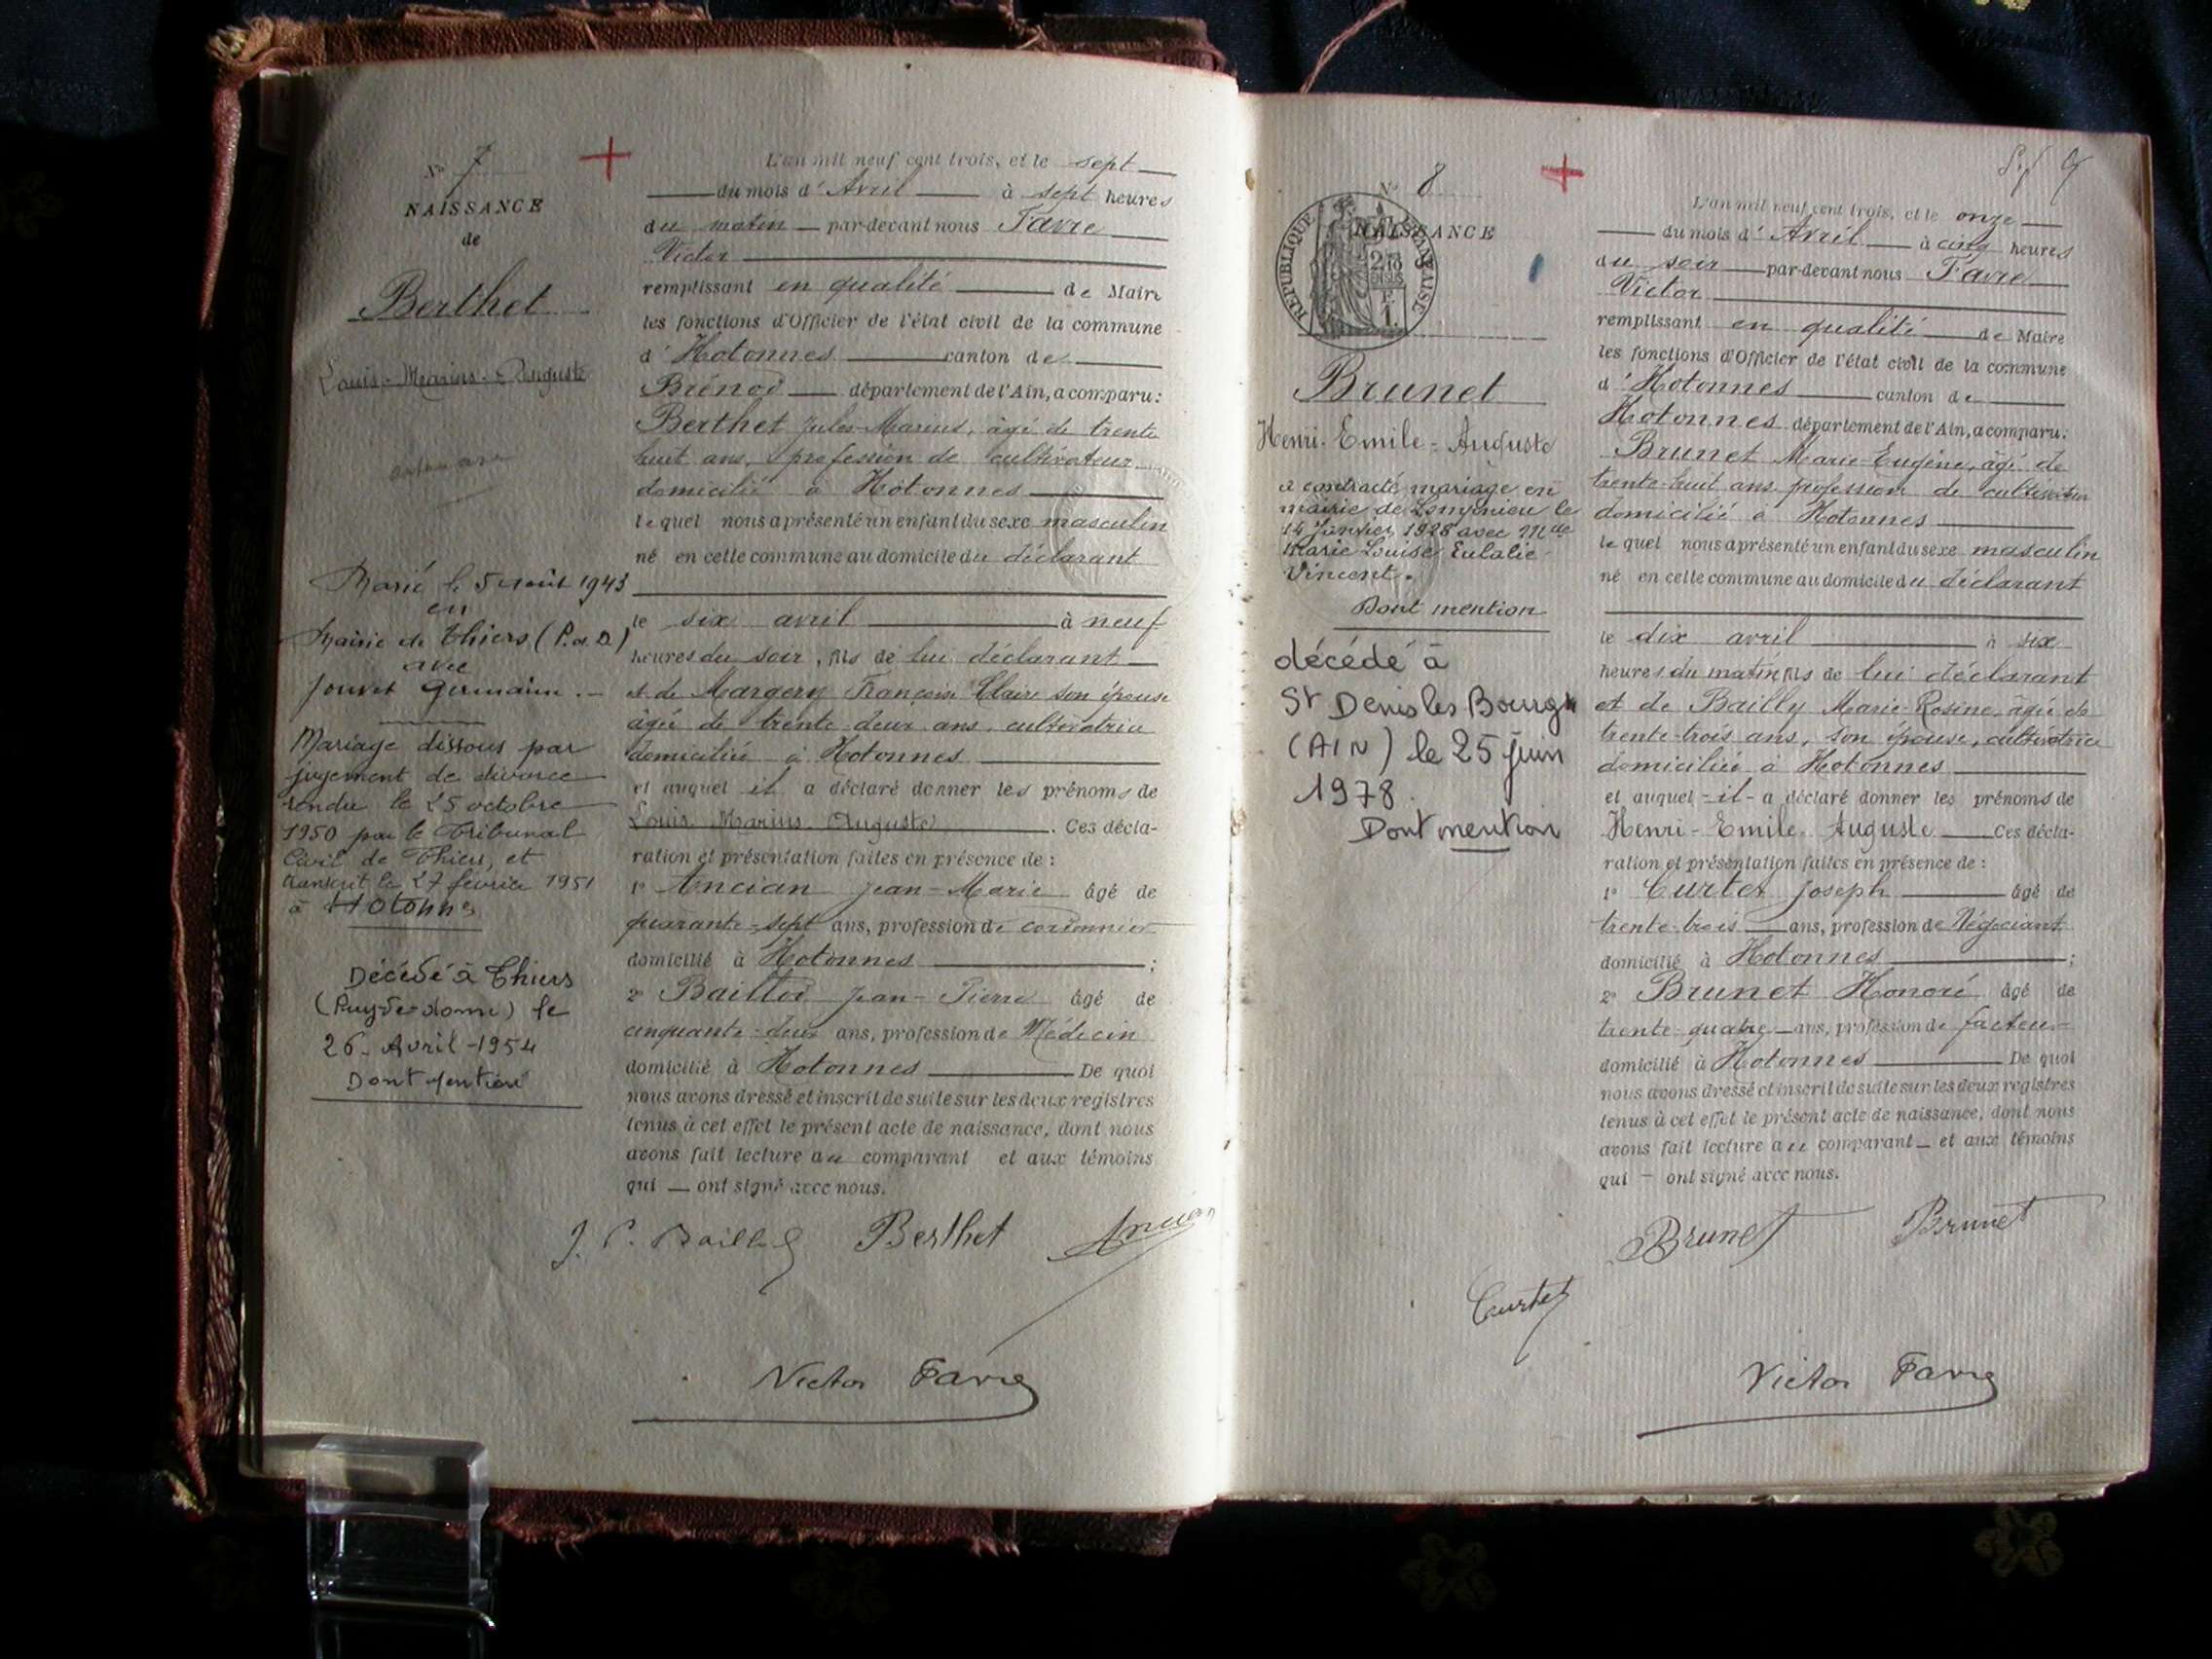 N° 7
NAISSANCE
de
Berthet
Louis-Marius-Auguste
Marié le 5 août 1943
en
Mairie de Thiers (P. de D.)
avec
Jouvet Germaine .-
Mariage dissous par
jugement de divorce
rendu le 25 octobre
1950 par le Tribunal
Civil de Thiers, et
transcrit le 27 février 1951
à Hotonnes
Décédé à Thiers
(Puy-de-dome) le
26 - Avril - 1954
Dont mention
L'an mil neuf cent trois, et le sept
du mois d'Avril à sept heures
du matin par-devant nous Favre
Victor
remplissant en qualité de Maire
les fonctions d'Officier de l'état civil de la commune
d'Hotonnes canton de
Brénod département de l'Ain, a comparu:
Berthet Jules-Marius, âgé de trente
huit ans, profession de cultivateur
domicilié à Hotonnes
lequel nous a présenté un enfant du sexe masculin
né en cette commune au domicile du déclarant
le six avril à neuf
heures du soir, fils de lui déclarant
et de Margery Françoise Claire son épouse
âgée de trente deux ans, cultivatrice
domiciliée à Hotonnes
et auquel il a déclaré donner les prénoms de
Louis Marius Auguste. Ces décla-
ration et présentation faites en présence de :
1° Ancian Jean-Marie âgé de
quarante-sept ans, profession de cordonnier
domicilié à Hotonnes ;
2° Baillod Jean-Pierre âgé de
cinquante-deux ans, profession de Médecin
domicilié à Hotonnes De quoi
nous avons dressé et inscrit de suite sur les deux registres
tenus à cet effet le présent acte de naissance, dont nous
avons fait lecture au comparant et aux témoins
qui ont signé avec nous.
J. P. Baillod Berthet Ancian
Victor Favre
N° 8
NAISSANCE
RÉPUBLIQUE FRANÇAISE
Brunet
Henri-Emile-Auguste
a contracté mariage en
mairie de Lompnieu le
14 Janvier 1928 avec Mlle
Marie Louise Eulalie
Vincent.
Dont mention
décédé à
St Denis les Bourg
(AIN) le 25 juin
1978.
Dont mention
L'an mil neuf cent trois, et le onze
du mois d'Avril à cinq heures
du soir par-devant nous Favre
Victor
remplissant en qualité de Maire
les fonctions d'Officier de l'état civil de la commune
d'Hotonnes canton de
Hotonnes département de l'Ain, a comparu:
Brunet Marie-Eugène, âgé de
trente-huit ans profession de cultivateur
domicilié à Hotonnes
lequel nous a présenté un enfant du sexe masculin
né en cette commune au domicile du déclarant
le dix avril à six
heures du matin, fils de lui déclarant
et de Bailly Marie-Rosine, âgée de
trente-trois ans, son épouse, cultivatrice
domiciliée à Hotonnes
et auquel -il- a déclaré donner les prénoms de
Henri-Emile-Auguste Ces décla-
ration et présentation faites en présence de :
1° Curtet Joseph âgé de
trente-trois ans, profession de Négociant
domicilié à Hotonnes ;
2° Brunet Honoré âgé de
trente-quatre ans, profession de facteur
domicilié à Hotonnes De quoi
nous avons dressé et inscrit de suite sur les deux registres
tenus à cet effet le présent acte de naissance, dont nous
avons fait lecture au comparant et aux témoins
qui ont signé avec nous.
Brunet Brunet
Curtet
Victor Favre